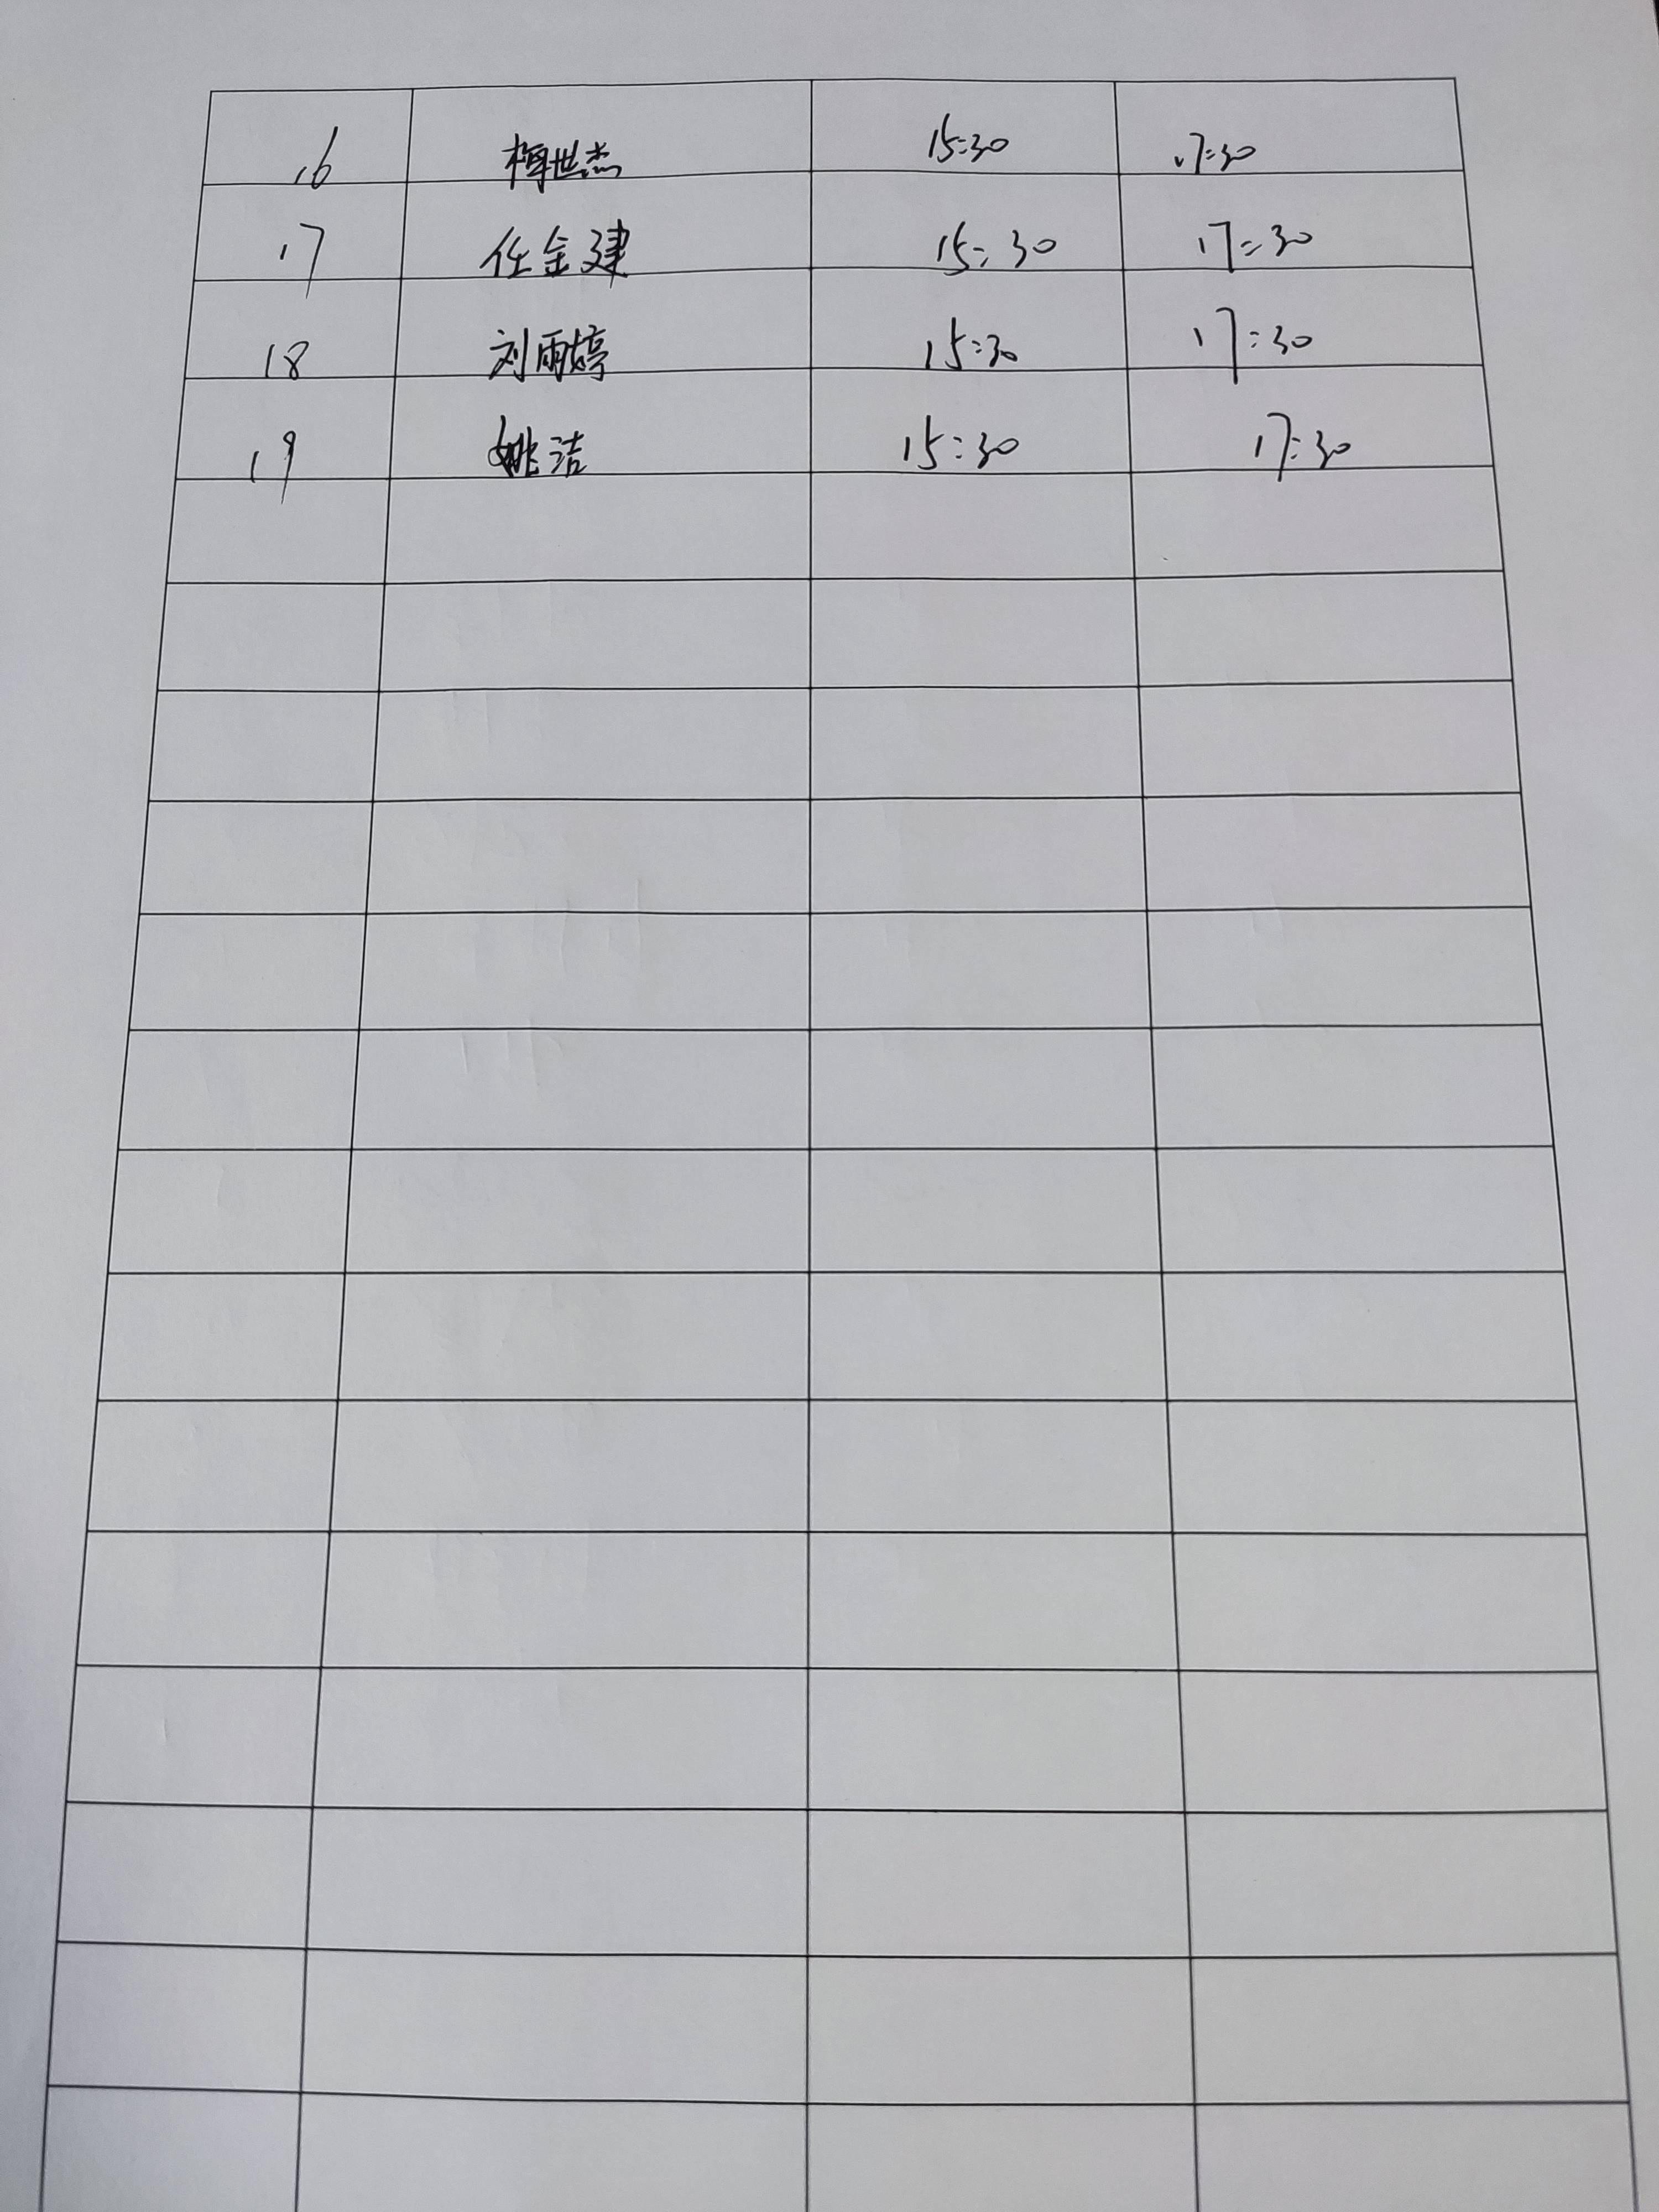 16 梅世杰 15:30 17:30
17 任金建 15:30 17:30
18 刘雨婷 15:30 17:30
19 姚洁 15:30 17:30